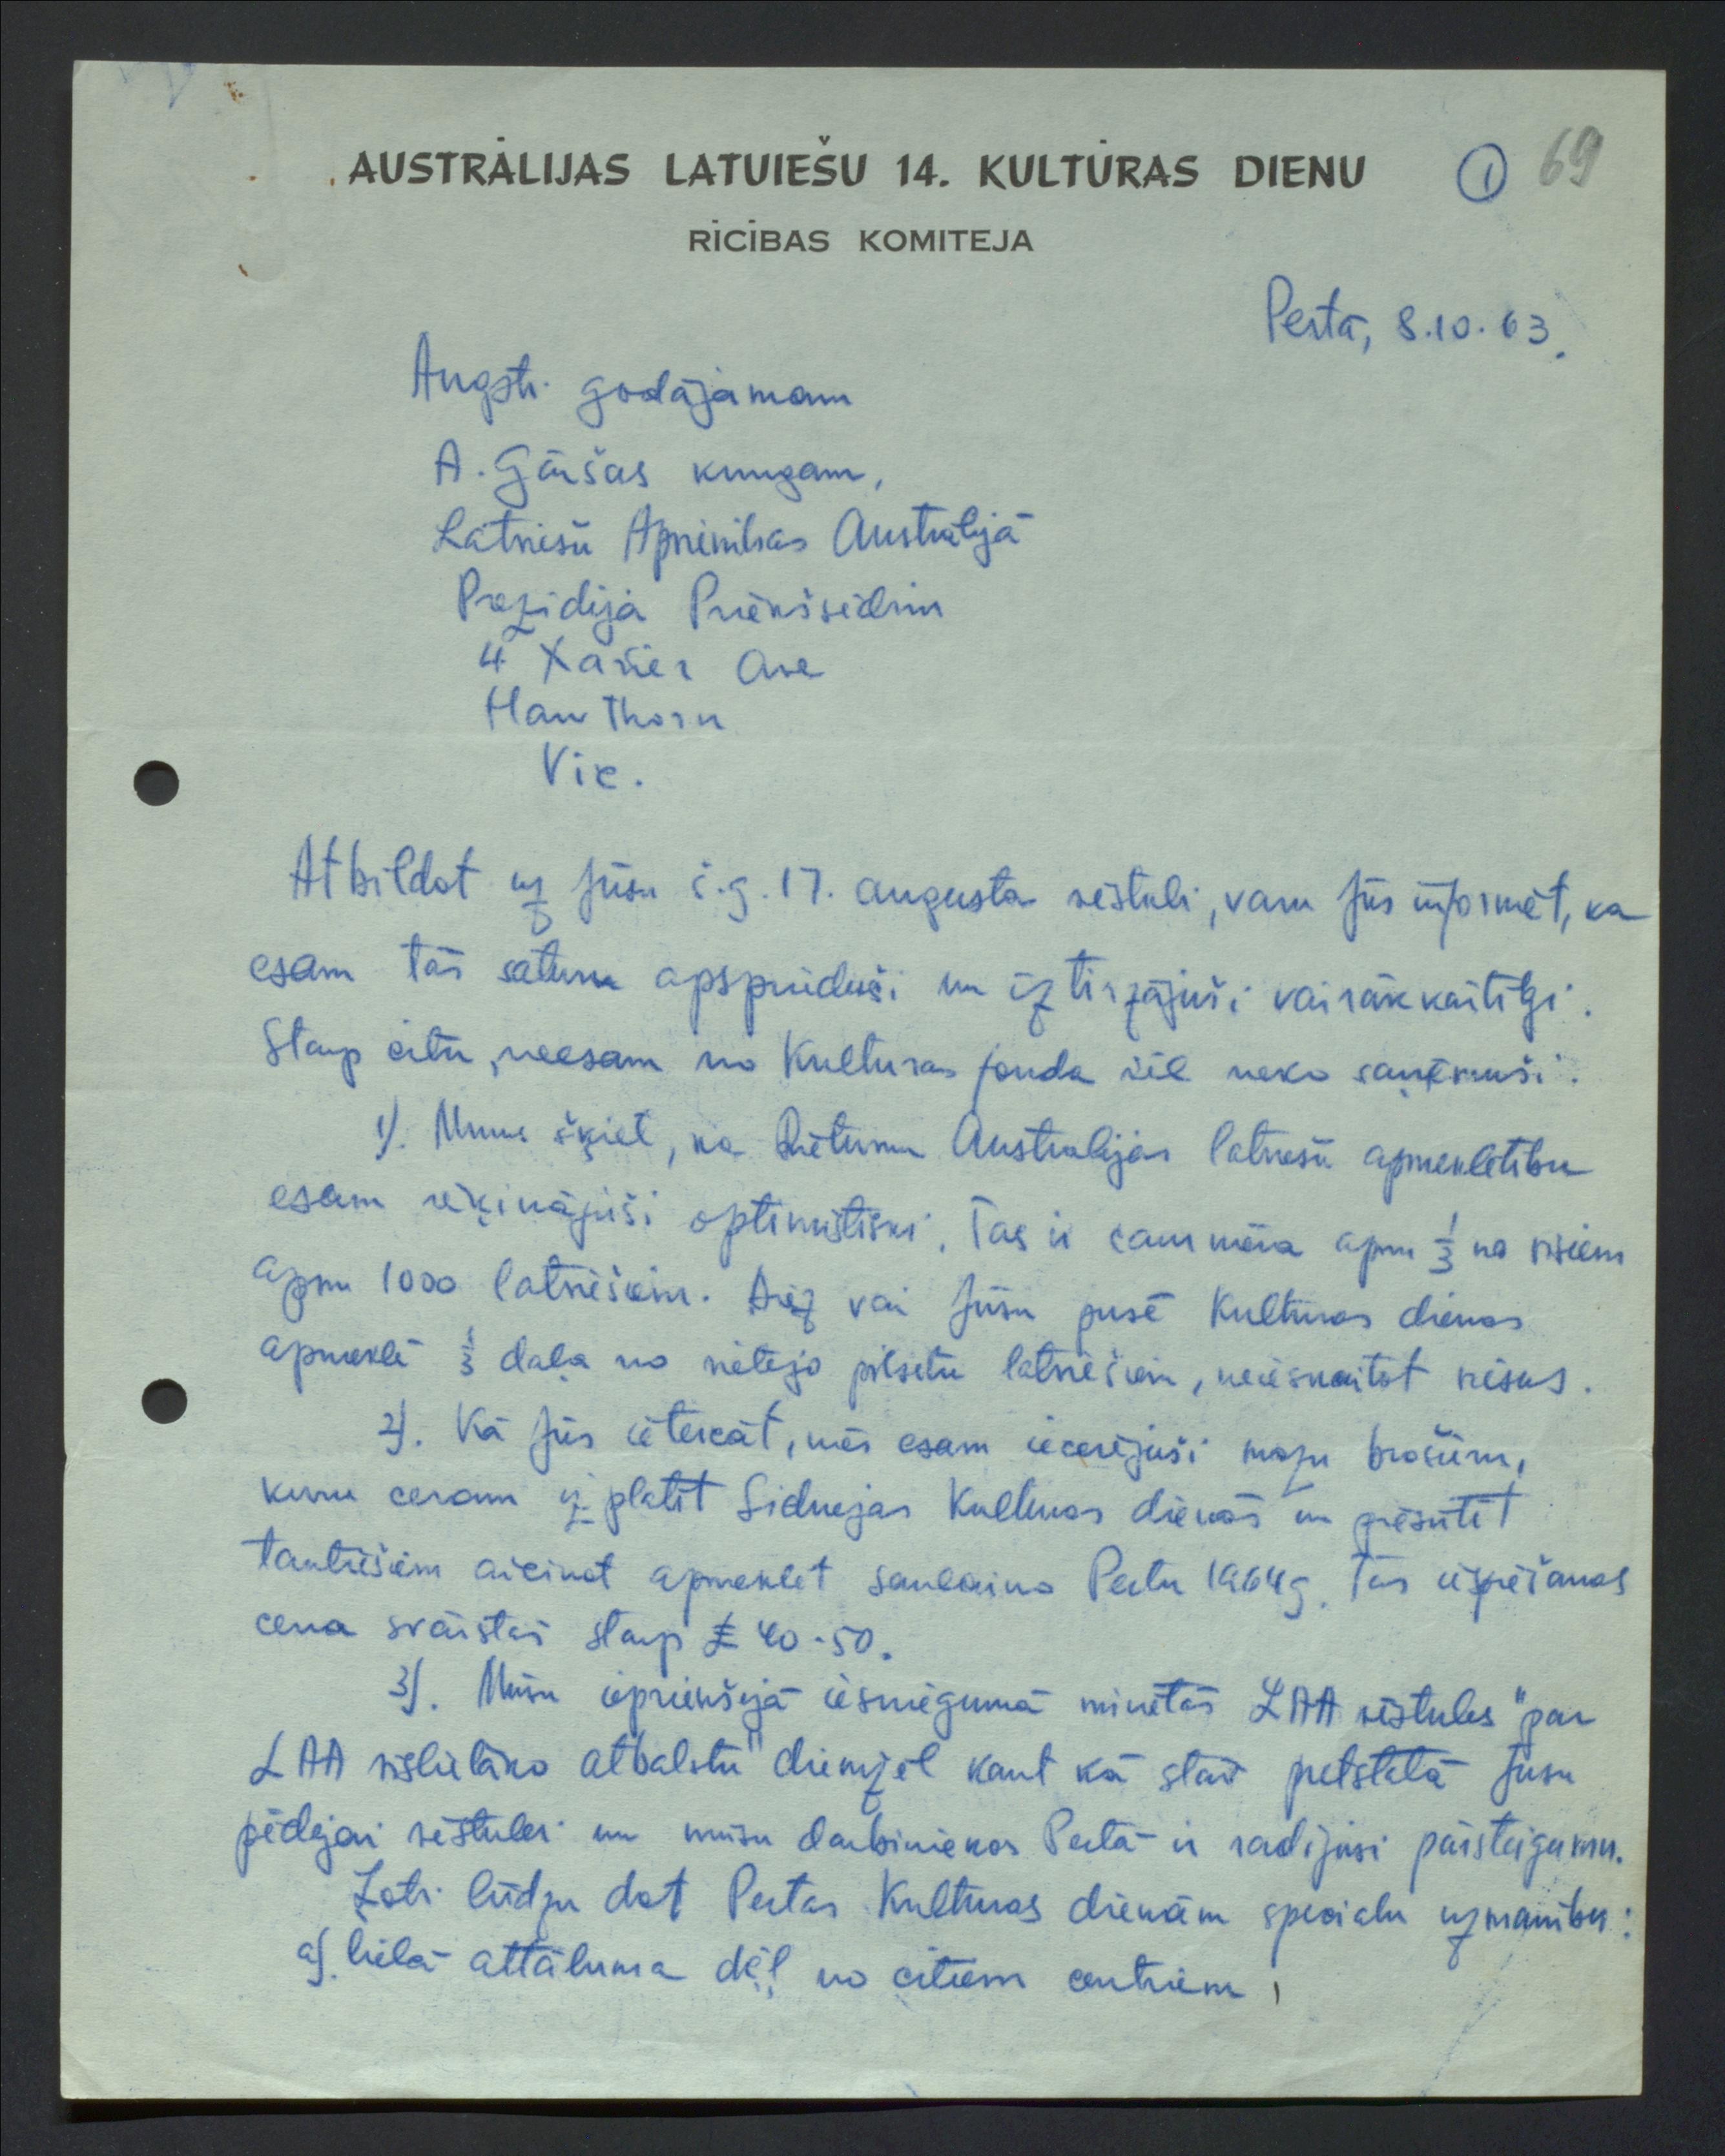 AUSTRĀLIJAS LATVIEŠU 14. KULTŪRAS DIENU
① 69
RĪCĪBAS KOMITEJA
Pertā, 8.10.63.
Augsti godājamam
A. Gāršas kungam,
Latviešu Apvienības Austrālijā
Prezidija Priekšsēdim
4 Xavier Ave
Hawthorn
Vic.
Atbildot uz Jūsu š.g. 17. augusta vēstuli, varu Jūs informēt, ka
esam tās saturu apsprieduši un iztirzājuši vairākkārtīgi.
Starp citu, neesam no Kultūras fonda vēl neko saņēmuši.
1). Mums šķiet, ka Rietumu Austrālijas latviešu apmeklētību
esam rēķinājuši optimistiski. Tas ir caurmēra apm 1/3 no visiem
apm 1000 latviešiem. Diez vai Jūsu pusē Kultūras dienas
apmeklē 1/3 daļa no vietējo pilsētu latviešiem, neieskaitot viesus.
2). Kā Jūs ieteicāt, mēs esam iecerējuši mazu brošūru,
kuru ceram izplatīt Sidnejas Kultūras dienās un piesūtīt
tautiešiem aicinot apmeklēt saulaino Pertu 1964g. Tās iespiešanas
cena svārstās starp £ 40-50.
3). Mūsu iepriekšējā iesniegumā minētās LAA vēstules "par
LAA vislielāko atbalstu" diemžēl kaut kā stāv pretstatā Jūsu
pēdējai vēstulei un mūsu darbiniekos Pertā ir radījusi pārsteigumu.
Ļoti lūdzu dot Pertas Kultūras dienām speciālu uzmanību:
a). lielā attāluma dēļ no citiem centriem,